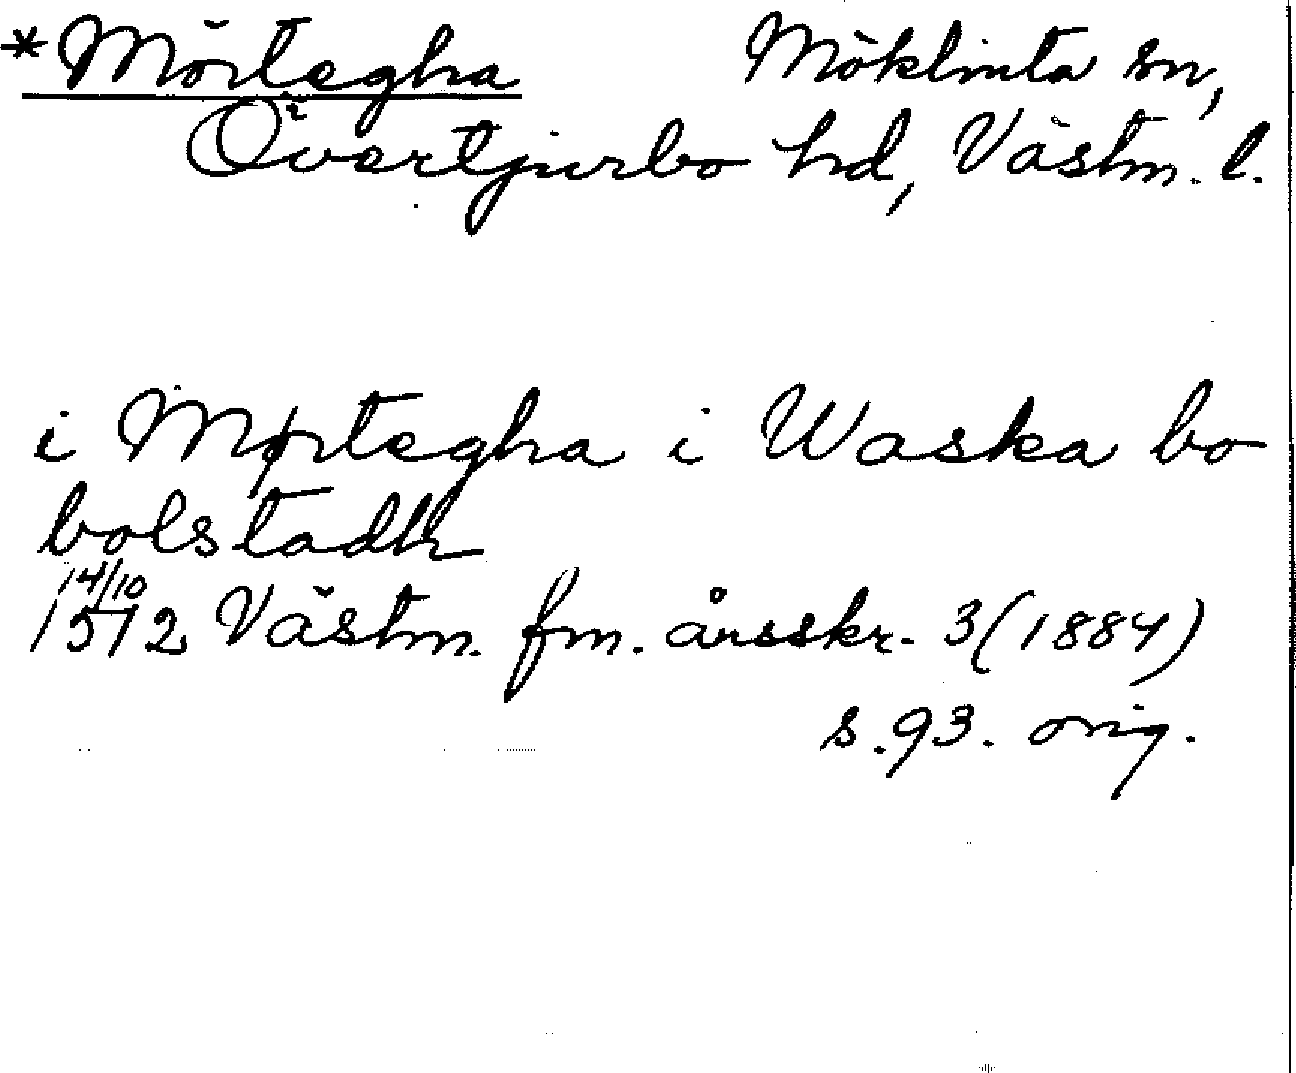 *Mörtegha Möklinta sn,
Övertjurbo hd, Västm. l.
i Mørtegha i Waska bo
bolstadh
14/10
1512 Västm. fm. årsskr. 3 (1884)
s. 93. orig.